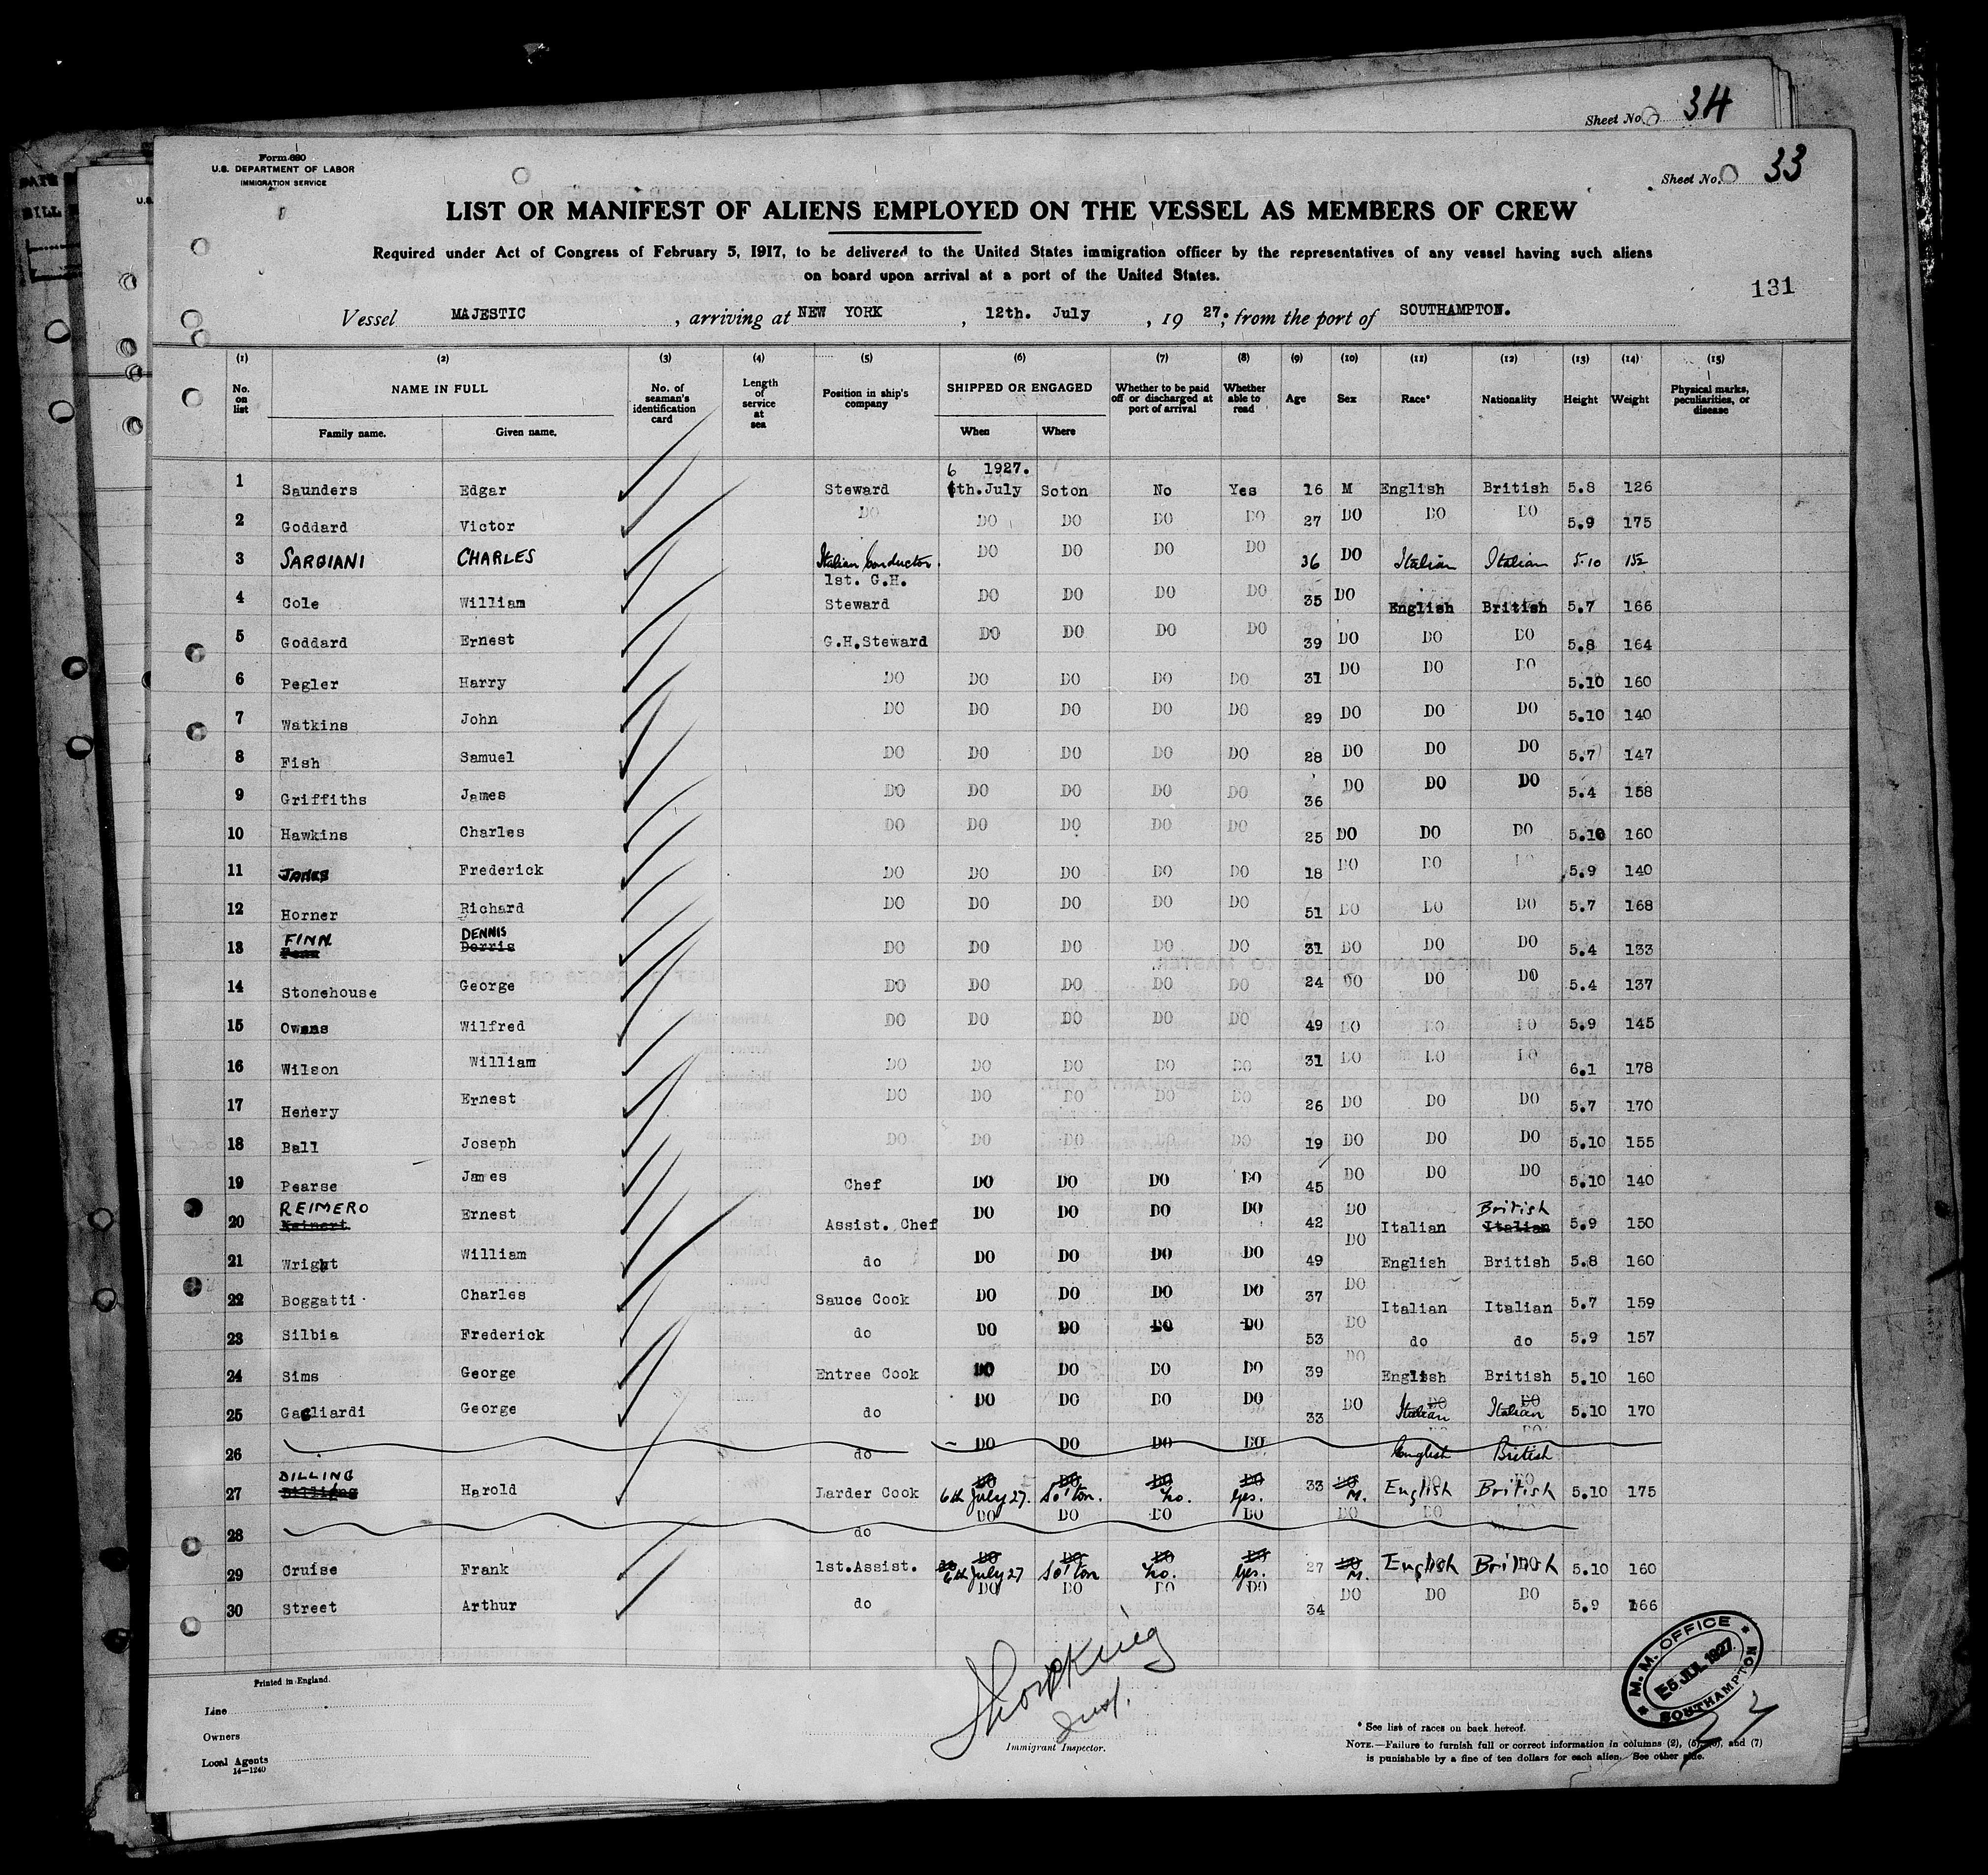 Sheet No. 34
Form 680
U.S. DEPARTMENT OF LABOR
IMMIGRATION SERVICE
Sheet No. 33
LIST OR MANIFEST OF ALIENS EMPLOYED ON THE VESSEL AS MEMBERS OF CREW
Required under Act of Congress of February 5, 1917, to be delivered to the United States immigration officer by the representatives of any vessel having such aliens
on board upon arrival at a port of the United States.
131
Vessel MAJESTIC, arriving at NEW YORK, 12th. July, 19 27; from the port of SOUTHAMPTON.
(1) (2) (3) (4) (5) (6) (7) (8) (9) (10) (11) (12) (13) (14) (15)
No. on list NAME IN FULL No. of seaman's identification card Length of service at sea Position in ship's company SHIPPED OR ENGAGED Whether to be paid off or discharged at port of arrival Whether able to read Age Sex Race* Nationality Height Weight Physical marks, peculiarities, or disease
Family name. Given name. When Where
6 1927.
1 Saunders Edgar Steward 6th.July Soton No Yes 16 M English British 5.8 126
2 Goddard Victor DO DO DO DO DO 27 DO DO DO 5.9 175
3 SARGIANI CHARLES Italian Conductor. DO DO DO DO 36 DO Italian Italian 5.10 152
1st. G.H.
4 Cole William Steward DO DO DO DO 35 DO English British 5.7 166
5 Goddard Ernest G.H.Steward DO DO DO DO 39 DO DO DO 5.8 164
6 Pegler Harry DO DO DO DO DO 31 DO DO DO 5.10 160
7 Watkins John DO DO DO DO DO 29 DO DO DO 5.10 140
8 Fish Samuel DO DO DO DO DO 28 DO DO DO 5.7 147
9 Griffiths James DO DO DO DO DO 36 DO DO DO 5.4 158
10 Hawkins Charles DO DO DO DO DO 25 DO DO DO 5.10 160
11 Frederick DO DO DO DO DO 18 DO DO DO 5.9 140
12 Horner Richard DO DO DO DO DO 51 DO DO DO 5.7 168
FINN DENNIS
13 Penn Dorris DO DO DO DO DO 31 DO DO DO 5.4 133
14 Stonehouse George DO DO DO DO DO 24 DO DO DO 5.4 137
15 Owens Wilfred DO DO DO DO DO 49 DO DO DO 5.9 145
16 Wilson William DO DO DO DO DO 31 DO DO DO 6.1 178
17 Henery Ernest DO DO DO DO DO 26 DO DO DO 5.7 170
18 Ball Joseph DO DO DO DO DO 19 DO DO DO 5.10 155
19 Pearse James Chef DO DO DO DO 45 DO DO DO 5.10 140
REIMERO British
20 Ernest Assist. Chef DO DO DO DO 42 DO Italian Italian 5.9 150
21 Wright William do DO DO DO DO 49 DO English British 5.8 160
22 Boggatti Charles Sauce Cook DO DO DO DO 37 DO Italian Italian 5.7 159
23 Silbia Frederick do DO DO DO DO 53 DO do do 5.9 157
24 Sims George Entree Cook DO DO DO DO 39 DO English British 5.10 160
25 Gagliardi George do DO DO DO DO 33 DO DO Italian DO Italian 5.10 170
26 do DO DO DO DO English British
BILLING DO DO DO DO DO DO DO
27 Harold Larder Cook 6th July 27. So'ton. No. Yes. 33 M. English British 5.10 175
28 do DO DO DO DO DO DO
DO DO DO DO DO
29 Cruise Frank 1st.Assist. 6th July 27 So'ton No. Yes. 27 M. English British 5.10 160
30 Street Arthur do DO DO DO DO 34 DO DO DO 5.9 166
Printed in England.
Line
Owners
Local Agents
14—1240
Immigrant Inspector.
M. M. OFFICE
5 JUL 1927
SOUTHAMPTON
* See list of races on back hereof.
NOTE.—Failure to furnish full or correct information in columns (2), (5), (6), and (7)
is punishable by a fine of ten dollars for each alien. See other side.